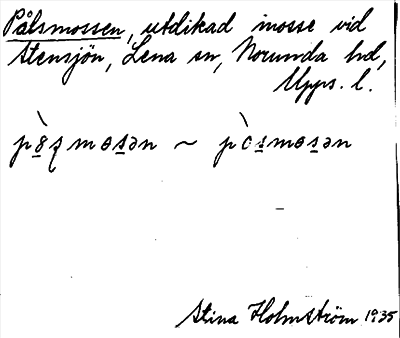 Pålsmossen, utdikad mosse vid
Stensjön, Lena sn, Norunda hd,
Upps. l.
pò̱ʂmɵs̱ən ~ pòs̱mɵs̱ən
Stina Holmström 1935